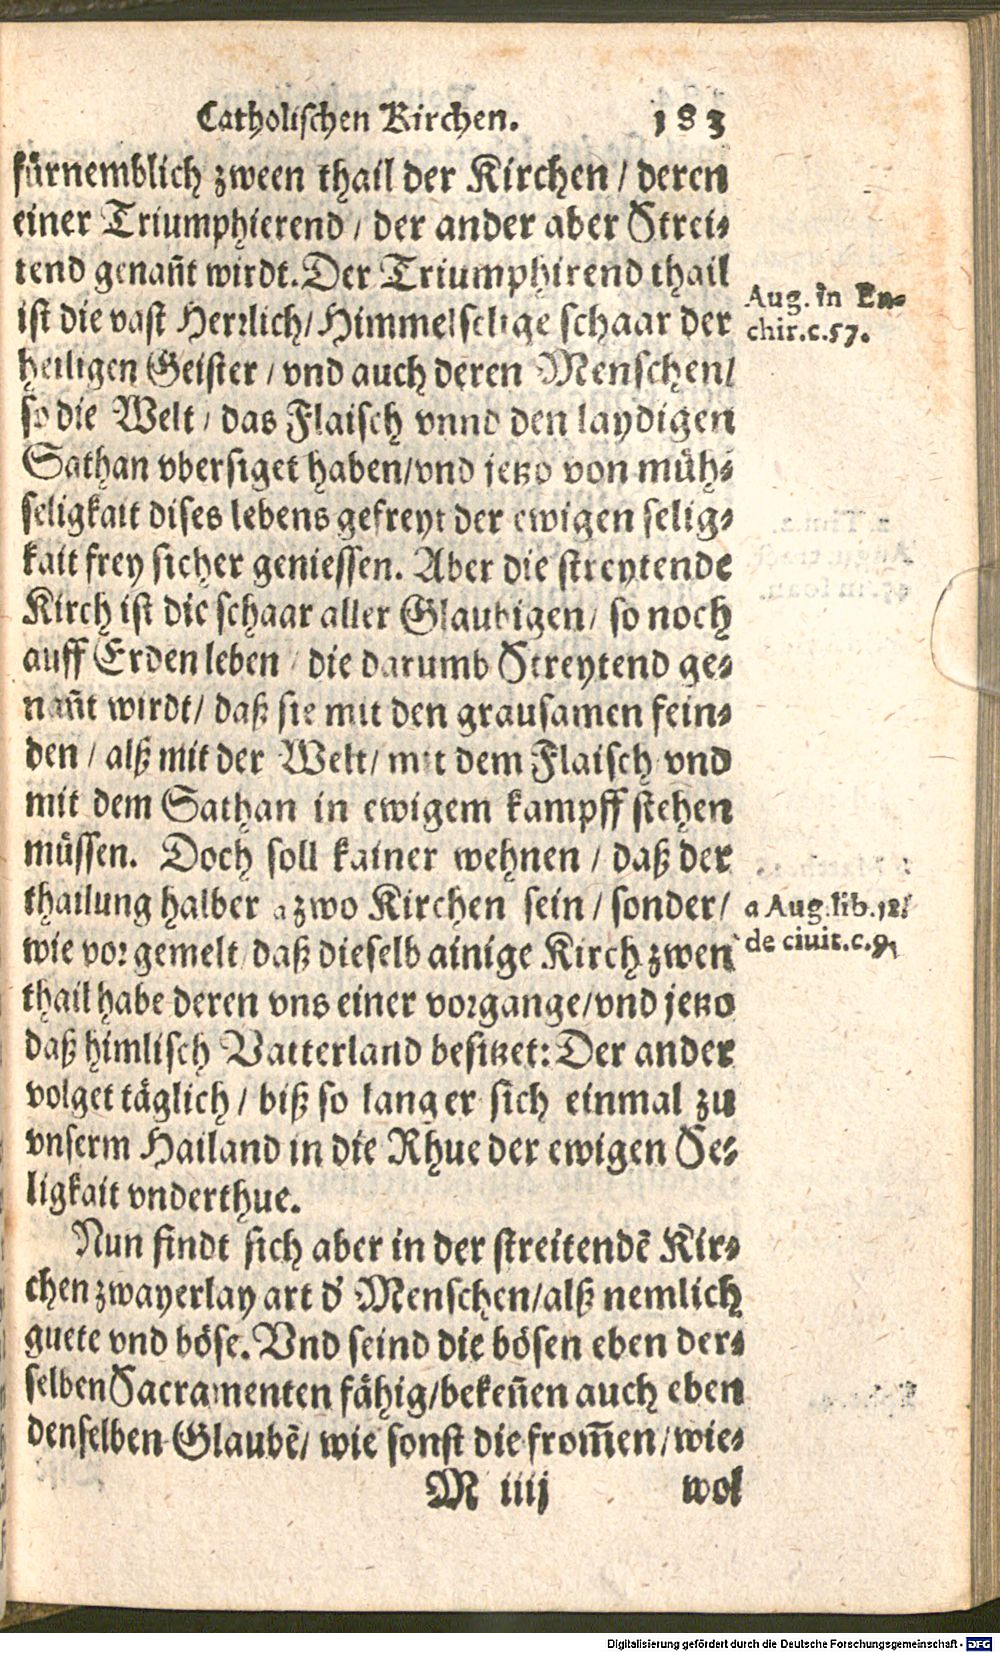 Catholischen Kirchen. 183
fürnemblich zween thail der Kirchen / deren
einer Triumphierend / der ander aber Strei-
tend genañt wirdt. Der Triumphirend thail
ist die vast Herrlich / Himmelselige schaar der
heiligen Geister / vnd auch deren Menschen /
so die Welt / das Flaisch vnnd den laydigen
Sathan vbersiget haben / vnd jetzo von müh-
seligkait dises lebens gefreyt der ewigen selig-
kait frey sicher geniessen. Aber die streytende
Kirch ist die schaar aller Glaubigen / so noch
auff Erden leben / die darumb Streytend ge-
nañt wirdt / daß sie mit den grausamen fein-
den / alß mit der Welt / mit dem Flaisch vnd
mit dem Sathan in ewigem kampff stehen
müssen. Doch soll kainer wehnen / daß der
thailung halber a zwo Kirchen sein / sonder /
wie vorgemelt / daß dieselb ainige Kirch zwen
thail habe deren vns einer vorgange / vnd jetzo
daß himlisch Vatterland besitzet: Der ander
volget täglich / biß so lang er sich einmal zu
vnserm Hailand in die Rhue der ewigen Se-
ligkait vnderthue.
Nun findt sich aber in der streitendẽ Kir-
chen zwayerlay art d' Menschen / alß nemlich
guete vnd böse. Vnd seind die bösen eben der-
selben Sacramenten fähig / bekeñen auch eben
denselben Glaubẽ / wie sonst die from̃en / wie-
M iiij wol
Aug. in En-
chir. c. 57.
a Aug. lib. 12.
de ciuit. c. 9.
Digitalisierung gefördert durch die Deutsche Forschungsgemeinschaft - DFG